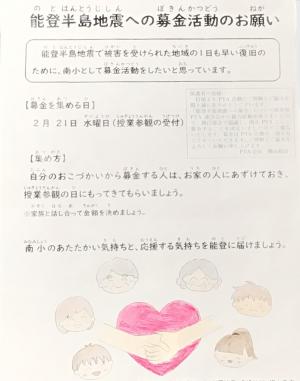 能登半島地震への募金活動のお願い
能登半島地震で被害を受けられた地域の1日も早い復旧の
ために、南小として募金活動をしたいと思っています。
【募金を集める日】
2月21日 水曜日(授業参観の受付)
【集め方】
自分のおこづかいから募金する人は、お家の人にあずけておき、
授業参観の日にもってきてもらいましょう。
※家族と話し合って金額を決めましょう。
南小のあたたかい気持ちと、応援する気持ちを能登に届けましょう。